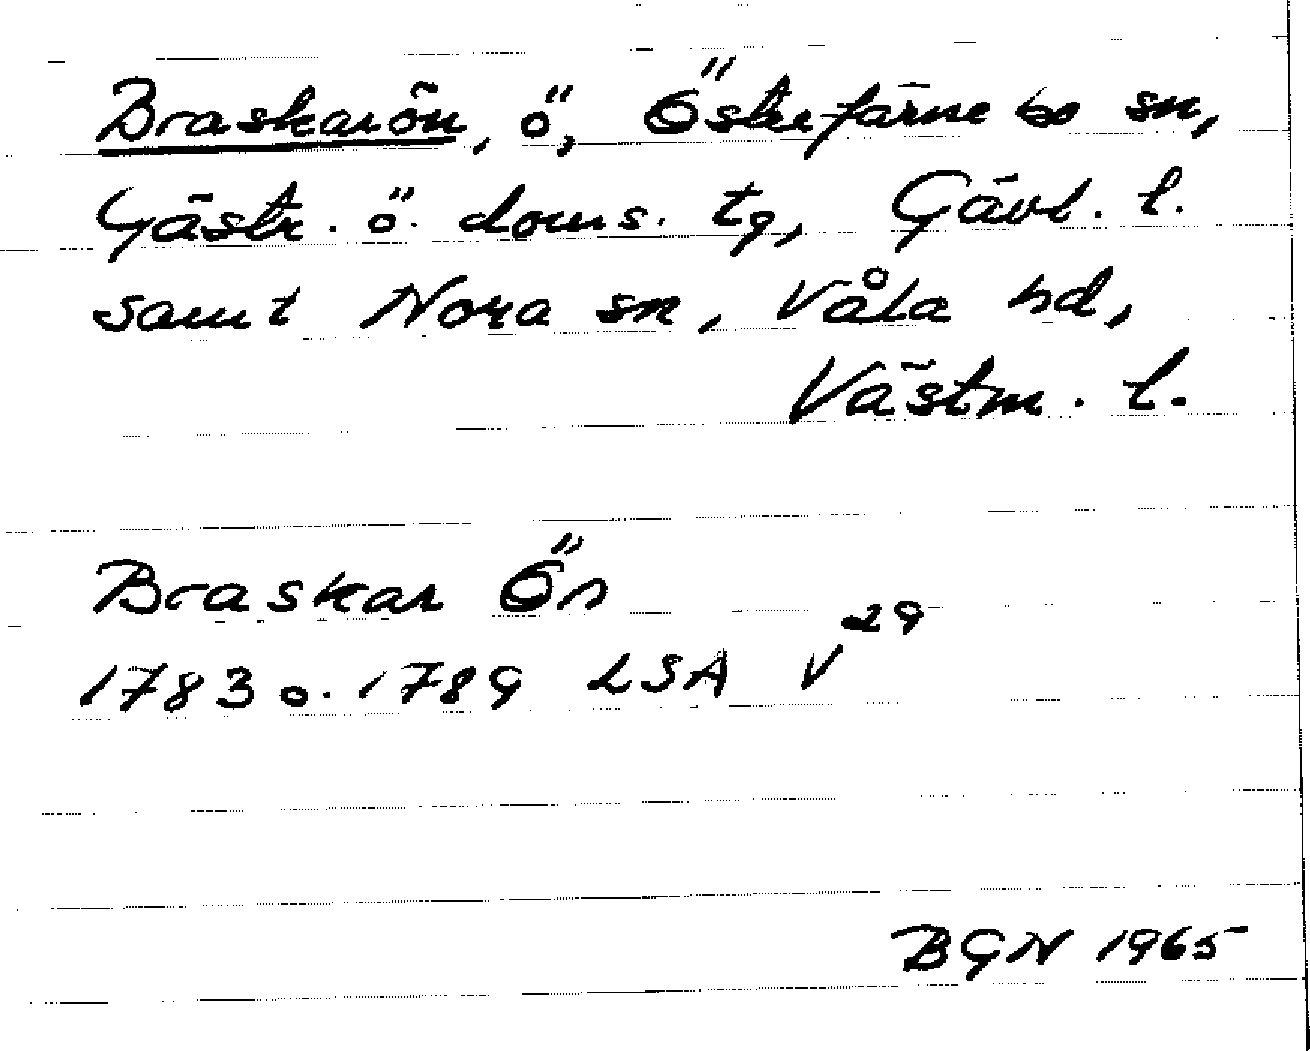 Braskarön, ö, Österfärnebo sn,
Gästr. ö. doms. tg, Gävl. l.
samt Nora sn, Våla hd,
Västm. l.
Braskar Ön
1783 o. 1789 LSA V 29
BGN 1965